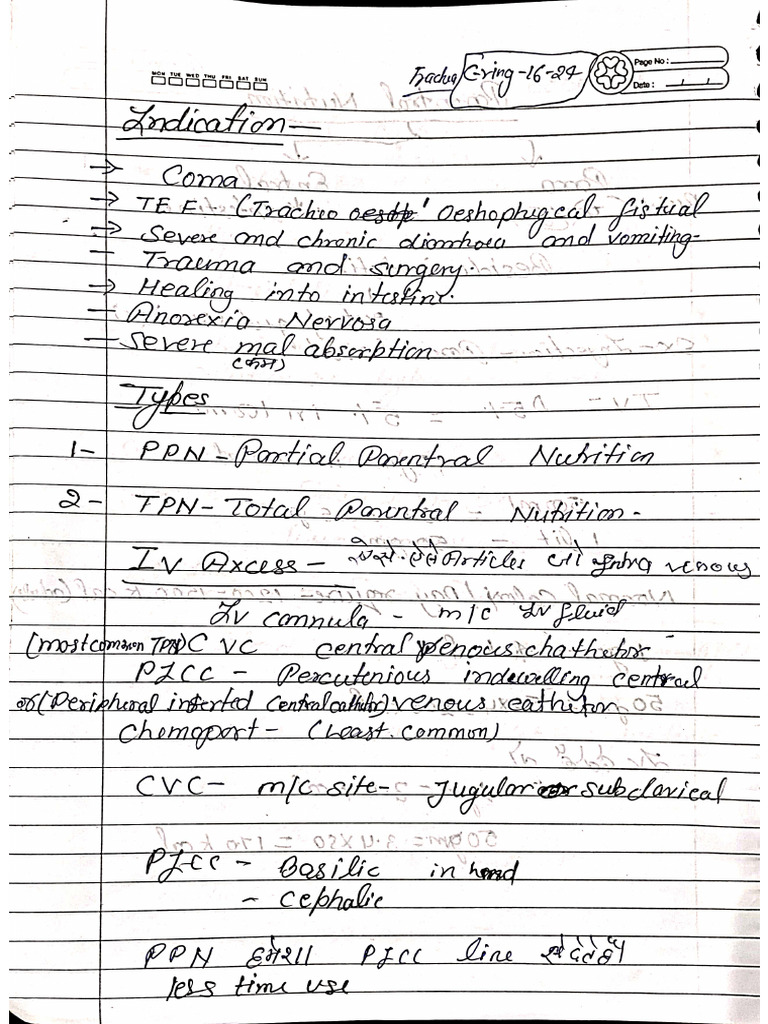 MON TUE WED THU FRI SAT SUN
Tracha C-ring-16-24
Page No :
Date :
Indication—
→ Coma
→ TEF (Tracheo Oeshophgical fistual
→ Severe and chronic diarrhoea and vomiting-
— Trauma and surgery.
→ Healing into intestine.
— Anorexia Nervosa
— Severe mal absorption
(कम)
Types
1- PPN-Partial Parentral Nutrition
2- TPN-Total Parentral - Nutrition-
IV Axcess- Articles जो intra venous
IV cannula - m/c IV fluid
(most common TPN) CVC central venous chatheter
PICC - Percutenious indwelling central
or (Peripheral inserted central catheter) venous cathiter
Chemoport - (Least. common)
CVC- m/c site- Jugular or subclavical
PICC - Basilic in hand
- cephalic
PPN हमेशा PICC line से देते है।
less time use